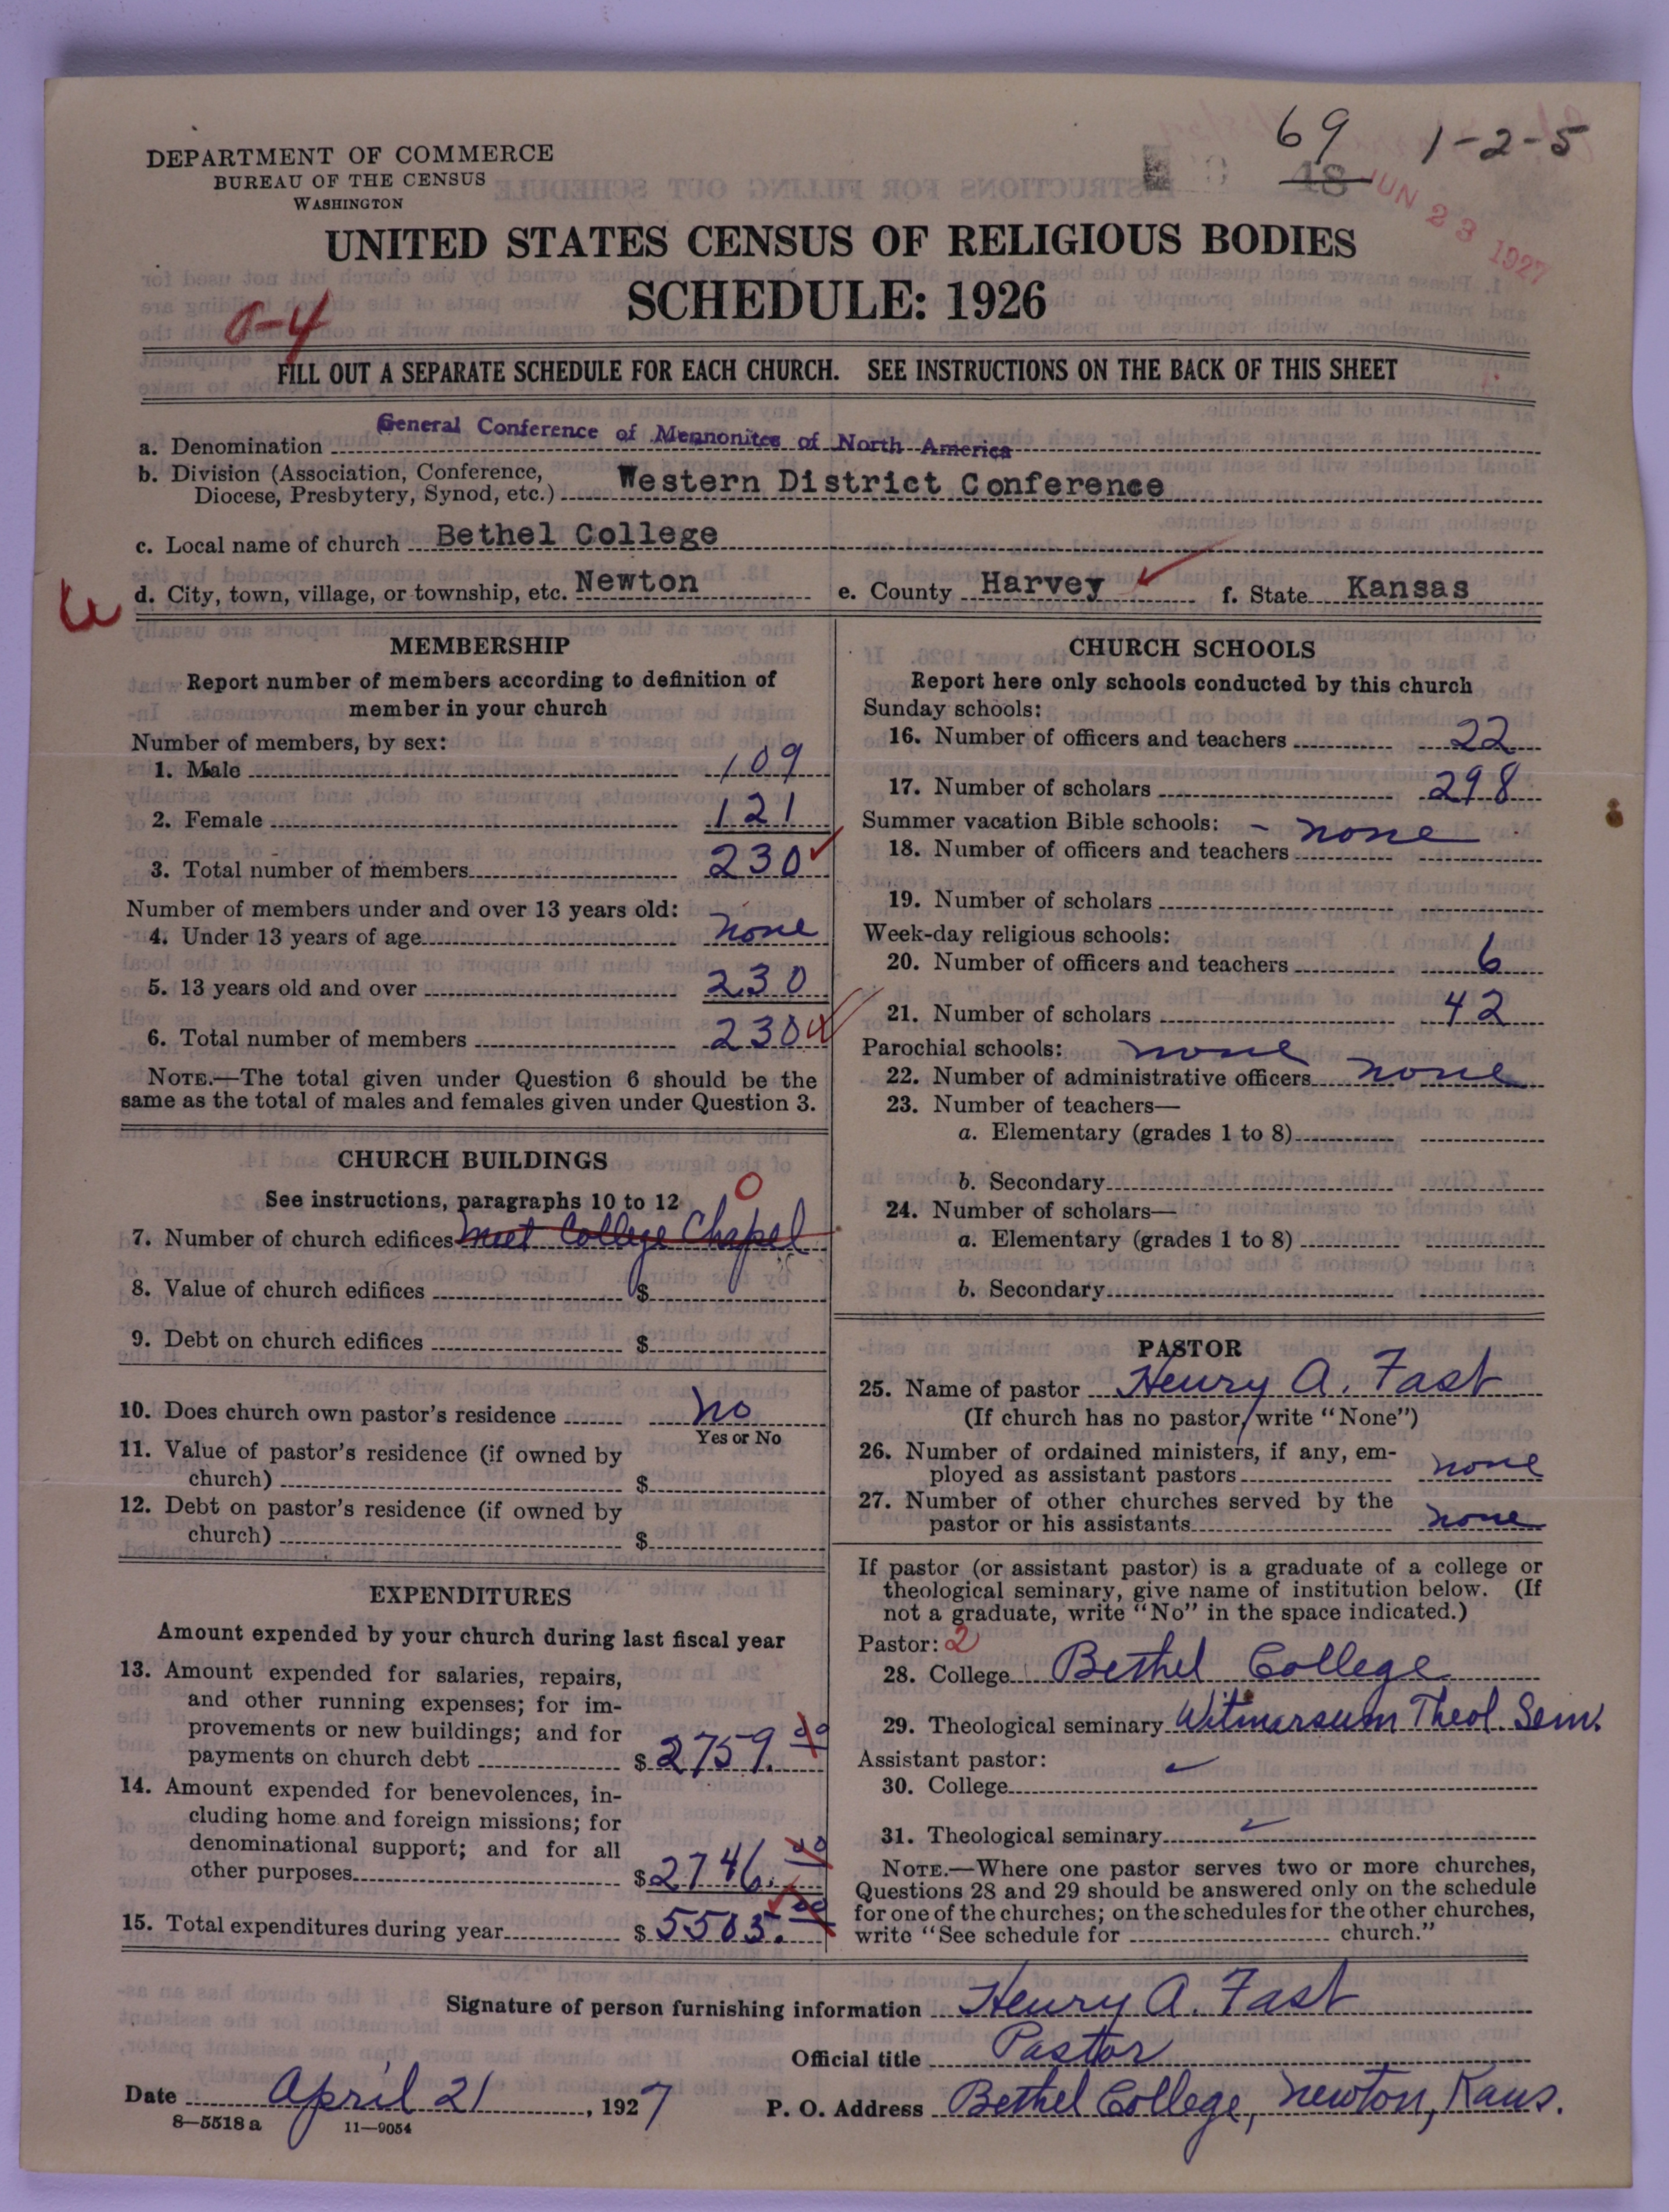 DEPARTMENT OF COMMERCE
BUREAU OF THE CENSUS
WASHINGTON
69 1-2-5
48
JUN 23 1927
UNITED STATES CENSUS OF RELIGIOUS BODIES
SCHEDULE: 1926
0-4
FILL OUT A SEPARATE SCHEDULE FOR EACH CHURCH. SEE INSTRUCTIONS ON THE BACK OF THIS SHEET
a. Denomination General Conference of Mennonites of North America
b. Division (Association, Conference,
Diocese, Presbytery, Synod, etc.) Western District Conference
c. Local name of church Bethel College
d. City, town, village, or township, etc. Newton e. County Harvey f. State Kansas
MEMBERSHIP
Report number of members according to definition of
member in your church
Number of members, by sex:
1. Male 109
2. Female 121
3. Total number of members 230
Number of members under and over 13 years old:
4. Under 13 years of age none
5. 13 years old and over 230
6. Total number of members 230
NOTE.—The total given under Question 6 should be the
same as the total of males and females given under Question 3.
CHURCH BUILDINGS
See instructions, paragraphs 10 to 12
0
7. Number of church edifices meet College Chapel
8. Value of church edifices $
9. Debt on church edifices $
10. Does church own pastor's residence no
Yes or No
11. Value of pastor's residence (if owned by
church) $
12. Debt on pastor's residence (if owned by
church) $
EXPENDITURES
Amount expended by your church during last fiscal year
13. Amount expended for salaries, repairs,
and other running expenses; for im-
provements or new buildings; and for
payments on church debt $ 2759.00
14. Amount expended for benevolences, in-
cluding home and foreign missions; for
denominational support; and for all
other purposes $ 2746.00
15. Total expenditures during year $ 5505.00
CHURCH SCHOOLS
Report here only schools conducted by this church
Sunday schools:
16. Number of officers and teachers 22
17. Number of scholars 298
Summer vacation Bible schools: - none
18. Number of officers and teachers
19. Number of scholars
Week-day religious schools:
20. Number of officers and teachers 6
21. Number of scholars 42
Parochial schools: none
22. Number of administrative officers none
23. Number of teachers—
a. Elementary (grades 1 to 8)
b. Secondary
24. Number of scholars—
a. Elementary (grades 1 to 8)
b. Secondary
PASTOR
25. Name of pastor Henry A. Fast
(If church has no pastor, write "None")
26. Number of ordained ministers, if any, em-
ployed as assistant pastors none
27. Number of other churches served by the
pastor or his assistants none
If pastor (or assistant pastor) is a graduate of a college or
theological seminary, give name of institution below. (If
not a graduate, write "No" in the space indicated.)
Pastor: 2
28. College Bethel College
29. Theological seminary Witmarsum Theol. Sem.
Assistant pastor:
30. College
31. Theological seminary
NOTE.—Where one pastor serves two or more churches,
Questions 28 and 29 should be answered only on the schedule
for one of the churches; on the schedules for the other churches,
write "See schedule for church."
Signature of person furnishing information Henry A. Fast
Official title Pastor
Date April 21, 1927 P. O. Address Bethel College, Newton, Kans.
8-5518 a 11-9054